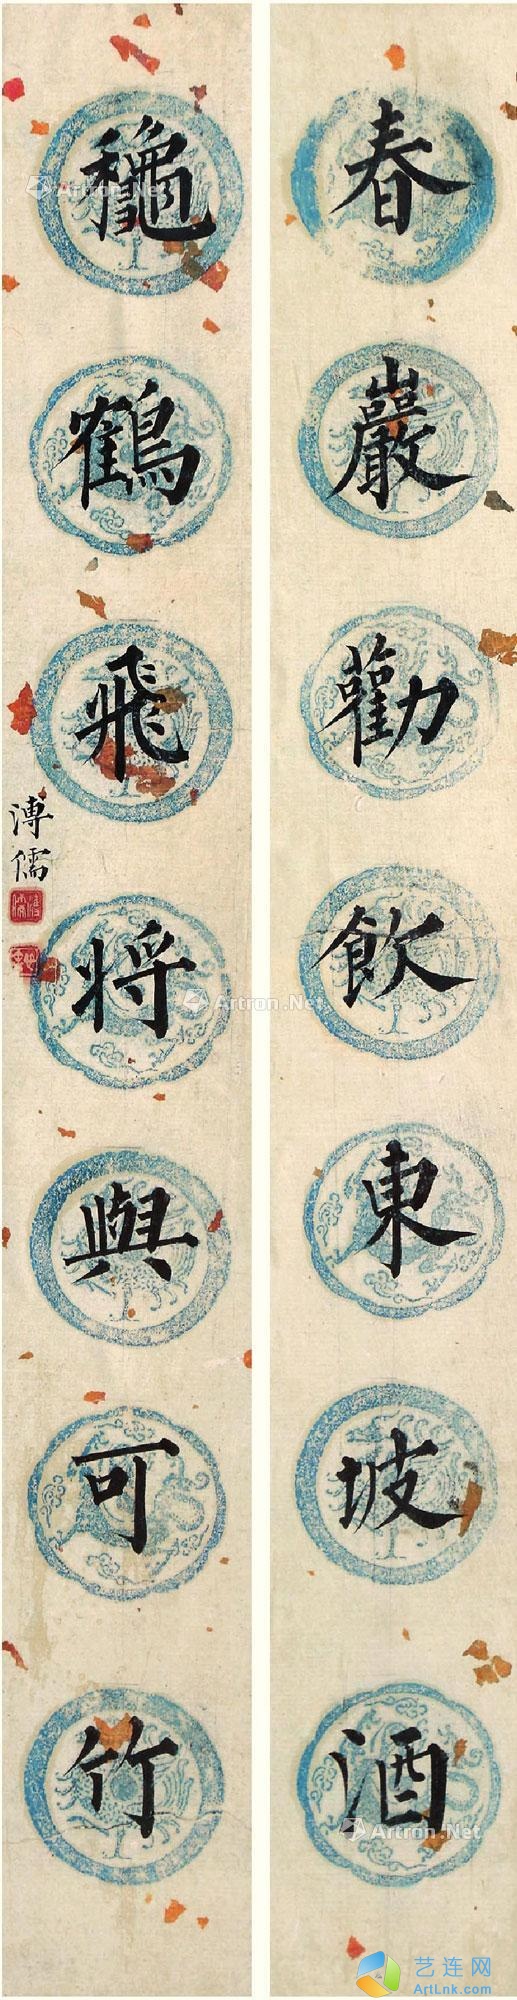 春巖勸飲東坡酒
龝鶴飛将與可竹
溥儒
Artron.Net
Artron.Net
Artron.Net
Artron.Net
艺连网
ArtLnk.com